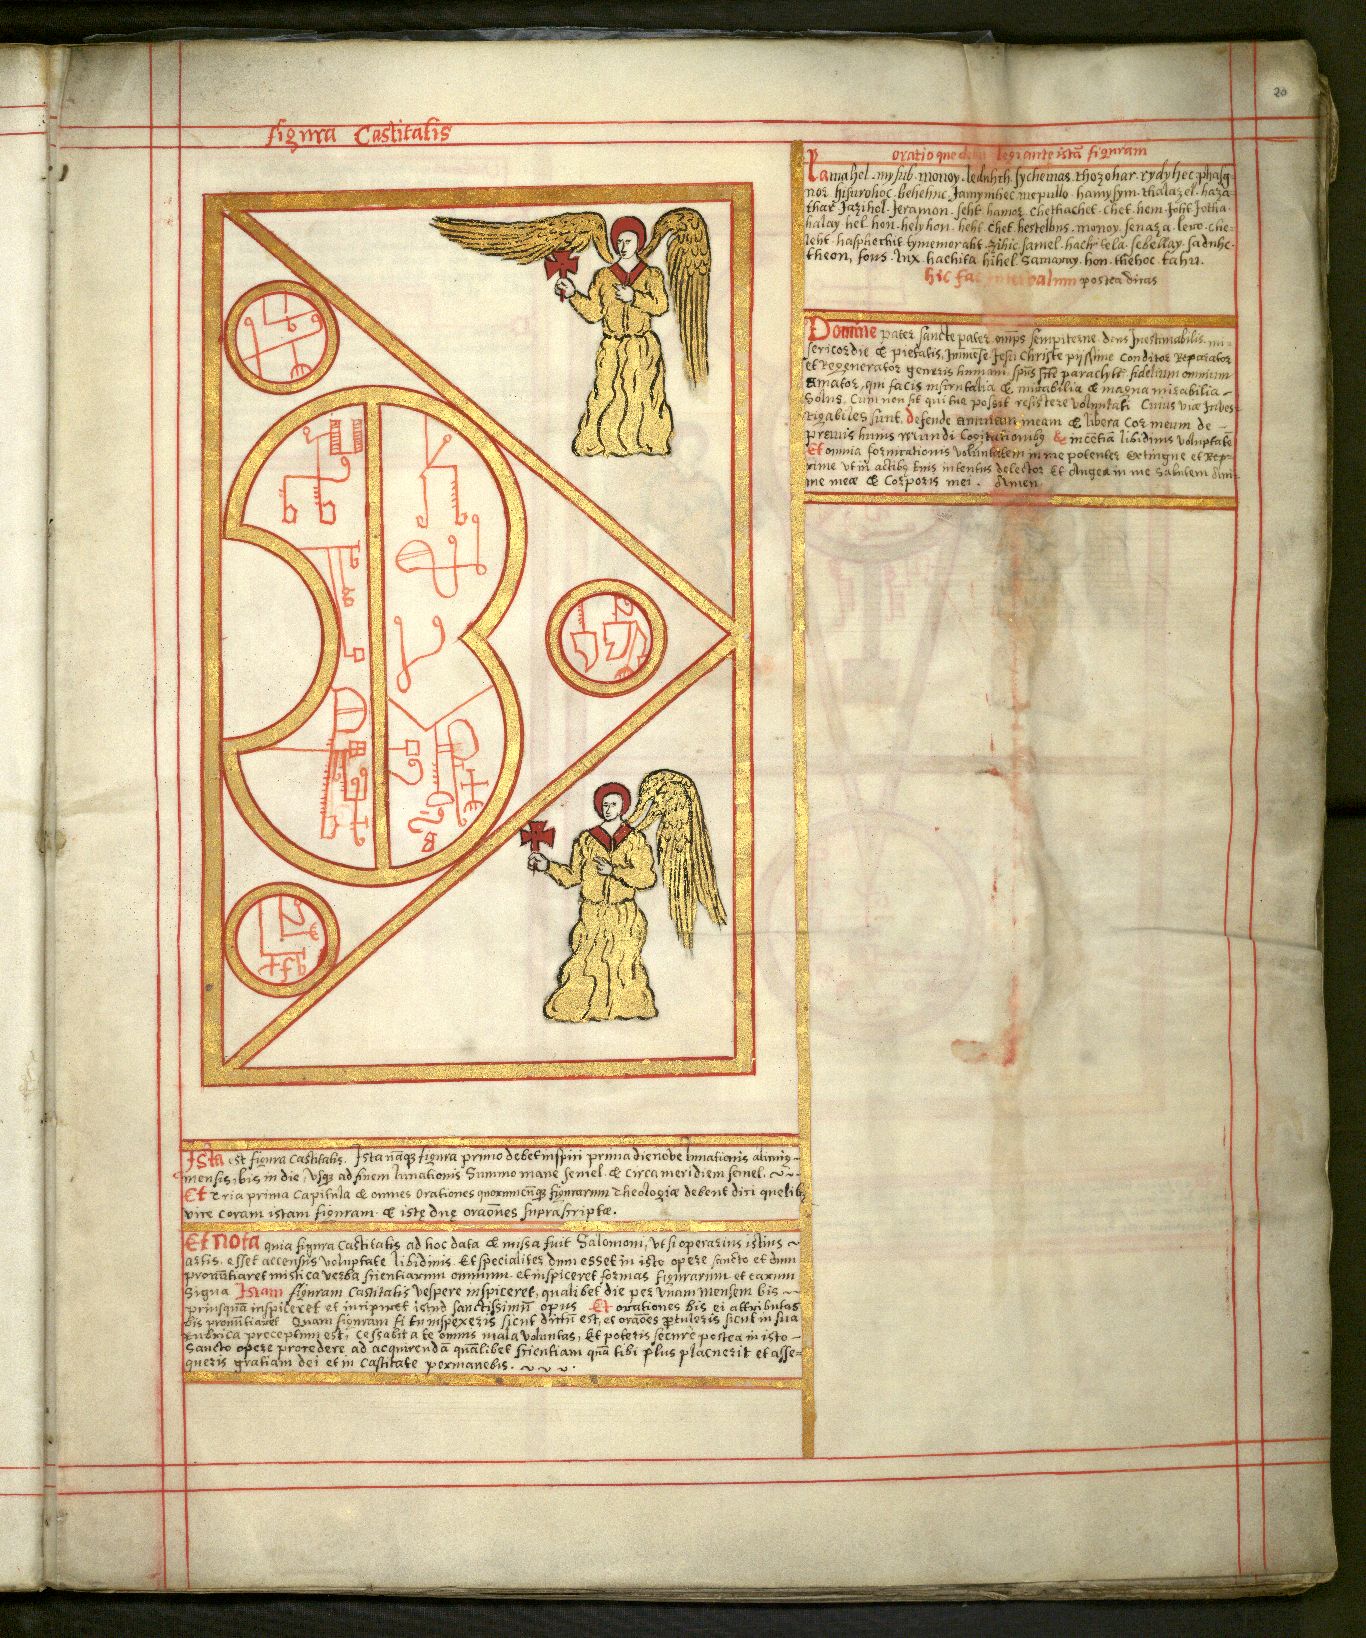 20
figura Castitatis
oratio que legi ante istā figuram
Lamahel . mysub . monoy . leduhth . sychemas . thozohar . rydyhec . phasg-
nor hisurohoc . behehuc . Jamymhec mepullo . hamysym . thalazel . haza-
thar Jazihol . Jeramon . seht hamor . chethachet . chet . hem . Joht Jotha .
halay hel . hon . helyhon . heht chet hestelbus . monoy . senaza . leuo . che-
leht . haspherhit tymemoraht . zihic . samel . hach sela . sebellay . saduhc .
theon, fous . lux . hachita hihel samaray . hon . thehoc . tahu.
hic fac intervalum postea dicas
Domine pater sancte pater omps sempiterne . deus Inestimabilis mi-
sericordie & pietatis, Immēse . Jesu Christe pijssime Conditor Reparator
et Regenerator generis humani . spūs scte paraclyte fidelium omnium
Amator, qui facis inscrutalia & mirabilia & magna mirabilia -
Solus, Cum non sit qui tue possit resistere voluntati Cuius viæ Inves-
tigabiles sunt. Defende animam meam & libera Cor meum de -
prauis huius mundi Cogitationibꝰ & incētia libidinis voluptatē
Et omnia fornicationis voluntatem in me potenter extingue et Rep-
rime ut in actibꝰ tuis intentus delector Et Augea in me salutem Ani-
me meæ & Corporis mei . Amen.
Ista est figura Castitatis. Ista nāq3 figura primo debet inspici prima die nove lunationis alicuiꝰ -
mensis, bis in die, usq3 ad finem lunationis Summo mane semel & circa meridiem semel.
Et tria prima Capitula & omnes orationes quorumcūq3 figurarum Theologiæ debent dici qualibꝫ
vice coram istam figuram & istę duę oraōnes suprascriptæ.
Et Nota quia figura Castitatis ad hoc data & missa fuit Salomoni, ut si operarius istius
artis, esset accensus voluptate libidinis Et specialiter dum esset in isto opere sancto et dum
pronūtiaret mistica verba scientiarum omnium et inspiceret formas figurarum et earum
Signa Istam figuram Castitatis vespere inspiceret, qualibet die per unam mensem bis
priusquā inspiceret et inciperet istud sanctissimū opus Et orationes bis ei attributas
bis pronūtiaret Quam figuram si tu inspexeris sicut dictū est, et oraōes ꝓtuleris sicut in sua
rubrica preceptum est, Cessabit a te omnis mala voluntas, Et poteris secure postea in isto -
Sancto opere procedere ad acquirendā quālibet scientiam quā tibi plus placuerit et asse-
queris gratiam dei et in Castitate permanebis.